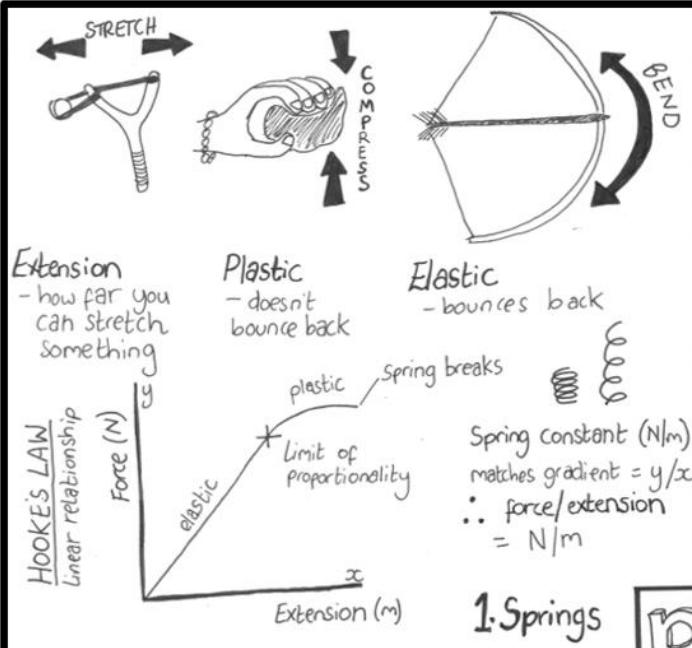 STRETCH
COMPRESS
BEND
Extension
- how far you
can stretch
something
Plastic
- doesn't
bounce back
Elastic
- bounces back
HOOKE'S LAW
Linear relationship
Force (N)
y
elastic
plastic
Spring breaks
Limit of
proportionality
x
Extension (m)
Spring constant (N/m)
matches gradient = y/x
∴ force/extension
= N/m
1. Springs